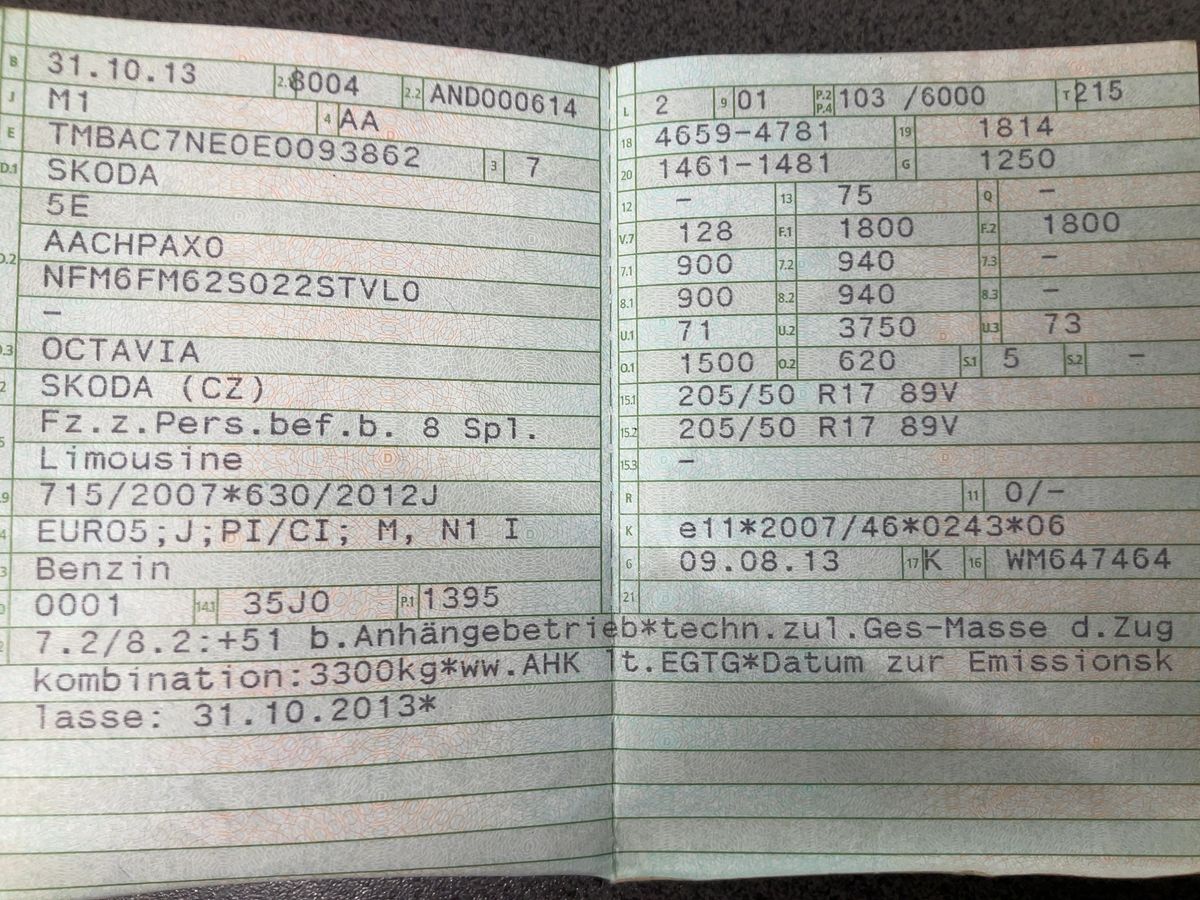 B 31.10.13 2.1 8004 2.2 AND000614
J M1 4 AA
E TMBAC7NE0E0093862 3 7
D.1 SKODA
5E
D.2 AACHPAX0
NFM6FM62S022STVL0
–
D.3 OCTAVIA
2 SKODA (CZ)
5 Fz.z.Pers.bef.b. 8 Spl.
Limousine
V.9 715/2007*630/2012J
14 EURO5;J;PI/CI; M, N1 I
P.3 Benzin
10 0001 14.1 35J0 P.1 1395
22 7.2/8.2:+51 b.Anhängebetrieb*techn.zul.Ges-Masse d.Zug
kombination:3300kg*ww.AHK lt.EGTG*Datum zur Emissionsk
lasse: 31.10.2013*
L 2 9 01 P.2 P.4 103 /6000 T 215
18 4659-4781 19 1814
20 1461-1481 G 1250
12 – 13 75 Q –
V.7 128 F.1 1800 F.2 1800
7.1 900 7.2 940 7.3 –
8.1 900 8.2 940 8.3 –
U.1 71 U.2 3750 U.3 73
O.1 1500 O.2 620 S.1 5 S.2 –
15.1 205/50 R17 89V
15.2 205/50 R17 89V
15.3 –
R 11 0/-
K e11*2007/46*0243*06
6 09.08.13 17 K 16 WM647464
21